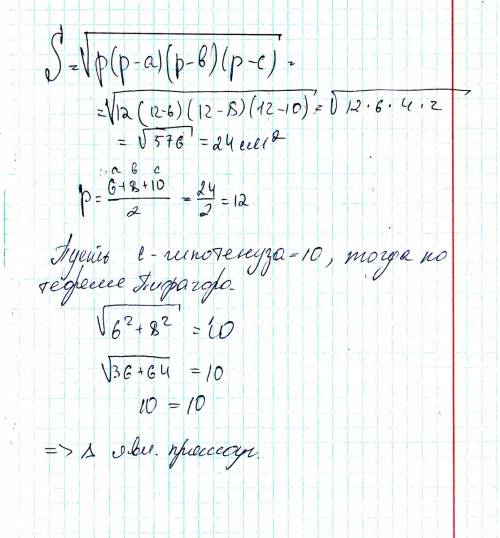 S = √p(p-a)(p-в)(p-c) =
= √12(12-6)(12-8)(12-10) = √12·6·4·2
= √576 = 24 см²
a в c
p = (6+8+10)/2 = 24/2 = 12
Пусть c - гипотенуза = 10, тогда по
теореме Пифагора.
√6²+8² = 10
√36+64 = 10
10 = 10
=> Δ явл. прямоуг.